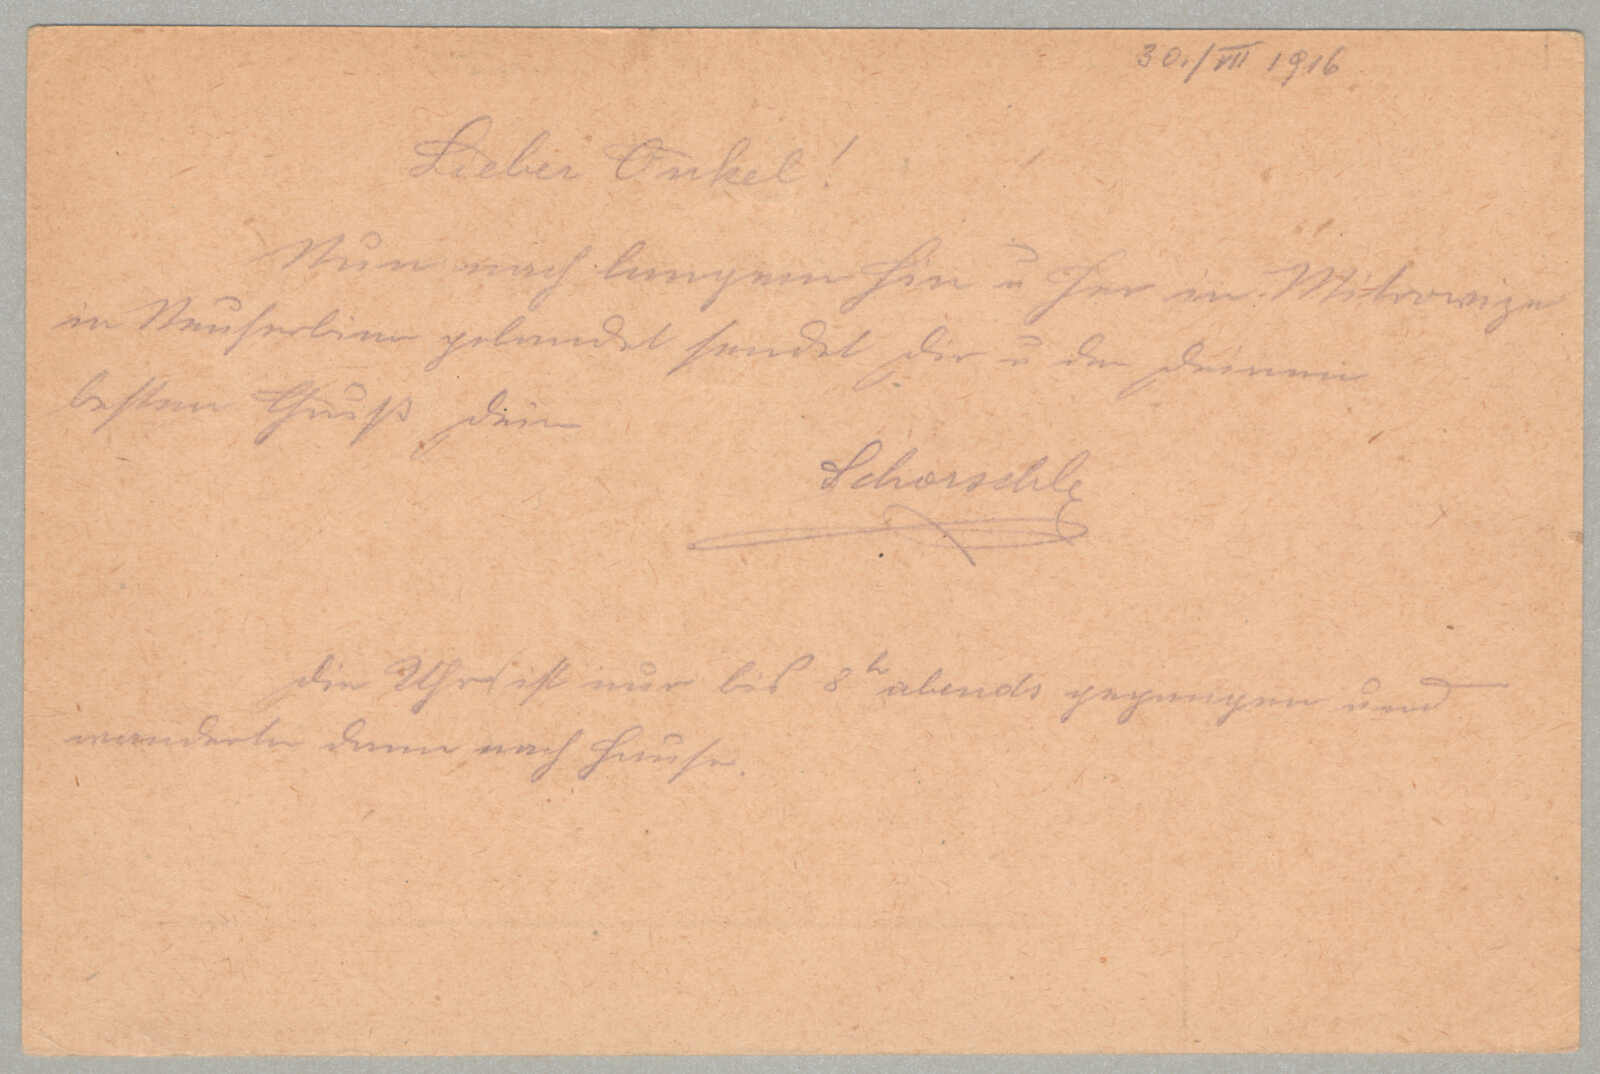 30./VII 1916
Lieber Onkel!
Nun nach langem Hin u Her in Mitrowiza
in Neuserbien gelandet sendet Dir u den Deinen
besten Gruß Dein
Schorschl
Die Uhr ist nur bis 8h abends gegangen und
wanderte dann nach Hause.